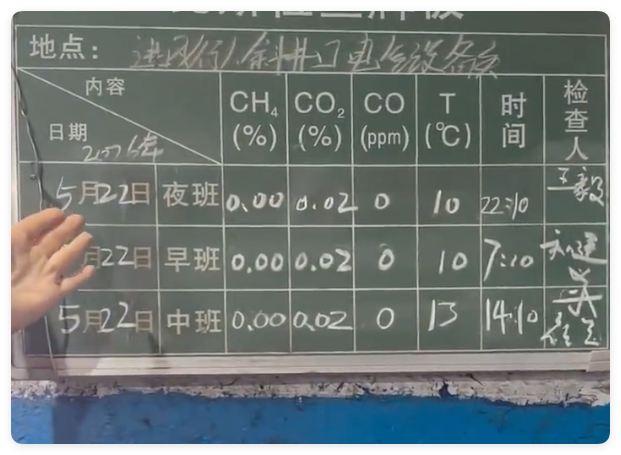 地点：进风行人斜井口电气设备处
内容 CH₄ (%) CO₂ (%) CO (ppm) T (℃) 时间 检查人
日期
5月22日 夜班 0.00 0.02 0 10 22:10 王毅
月22日 早班 0.00 0.02 0 10 7:10
5月22日 中班 0.00 0.02 0 13 14:10